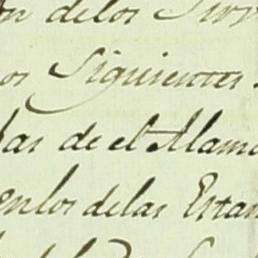 on de los Sir
os Siguientes.
as de el Alam
en los de las Estan